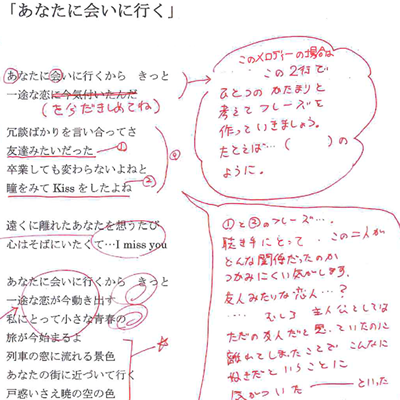 「あなたに会いに行く」
あなたに会いに行くから　きっと
一途な恋に今気付いたんだ
(を今だきしめてね)
冗談ばかりを言い合ってさ
友達みたいだった ①
卒業しても変わらないよねと
瞳をみてKissをしたよね ②
遠くに離れたあなたを想うたび
心はそばにいたくて…I miss you
あなたに会いに行くから　きっと
一途な恋が今動き出す
私にとって小さな青春の
旅が今始まるよ
列車の窓に流れる景色
あなたの街に近づいて行く
戸惑いさえ暁の空の色
このメロディーの場合は
この2行で
ひとつのかたまりと
考えてフレーズを
作っていきましょう。
たとえば…(　　)の
ように。
①と②のフレーズ…。
聴き手にとって、この二人が
どんな関係だったのか
つかみにくい気がします。
友人みたいな恋人…？
…… むしろ 主人公としては
ただの友人だと思っていたのに
離れてしまったことで こんなに
好きだということに
気がついた といった